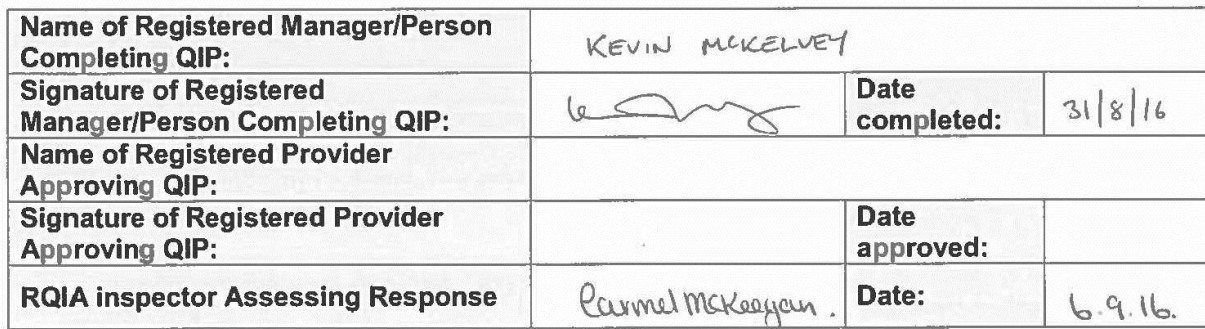 Name of Registered Manager/Person
Completing QIP:
KEVIN MCKELVEY
Signature of Registered
Manager/Person Completing QIP:
Date
completed:
31/8/16
Name of Registered Provider
Approving QIP:
Signature of Registered Provider
Approving QIP:
Date
approved:
RQIA inspector Assessing Response
Carmel McKeegan.
Date:
6.9.16.